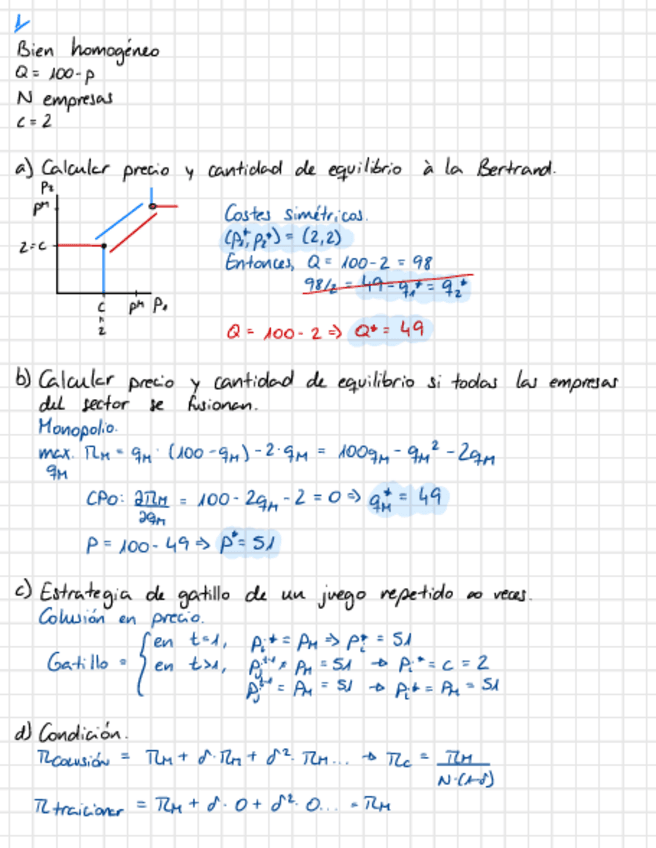 1
Bien homogéneo
Q = 100-p
N empresas
c = 2
a) Calcular precio y cantidad de equilibrio à la Bertrand.
P₂
pᴹ
2=c
c
=
2
pᴹ P₁
Costes simétricos.
(p₁*, p₂*) = (2,2)
Entonces, Q = 100-2 = 98
98/2 = 49 = q₁* = q₂*
Q = 100-2 => Q* = 49
b) Calcular precio y cantidad de equilibrio si todas las empresas
del sector se fusionan.
Monopolio.
max. πM = qM · (100-qM) - 2·qM = 100qM - qM² - 2qM
qM
CPO: ∂πM/∂qM = 100 - 2qM - 2 = 0 => qM* = 49
P = 100-49 => p* = 51
c) Estrategia de gatillo de un juego repetido ∞ veces.
Colusión en precio.
Gatillo = { en t=1, Pᵢ* = PM => Pᵢ* = 51
en t>1, Pⱼᵗ⁻¹ ≠ PM = 51 → Pᵢ* = c = 2
Pⱼᵗ⁻¹ = PM = 51 → Pᵢ* = PM = 51
d) Condición.
πcolusión = πM + δ·πM + δ²·πM... → πc = πM/N·(1-δ)
πtraicionar = πM + δ·0 + δ²·0... = πM